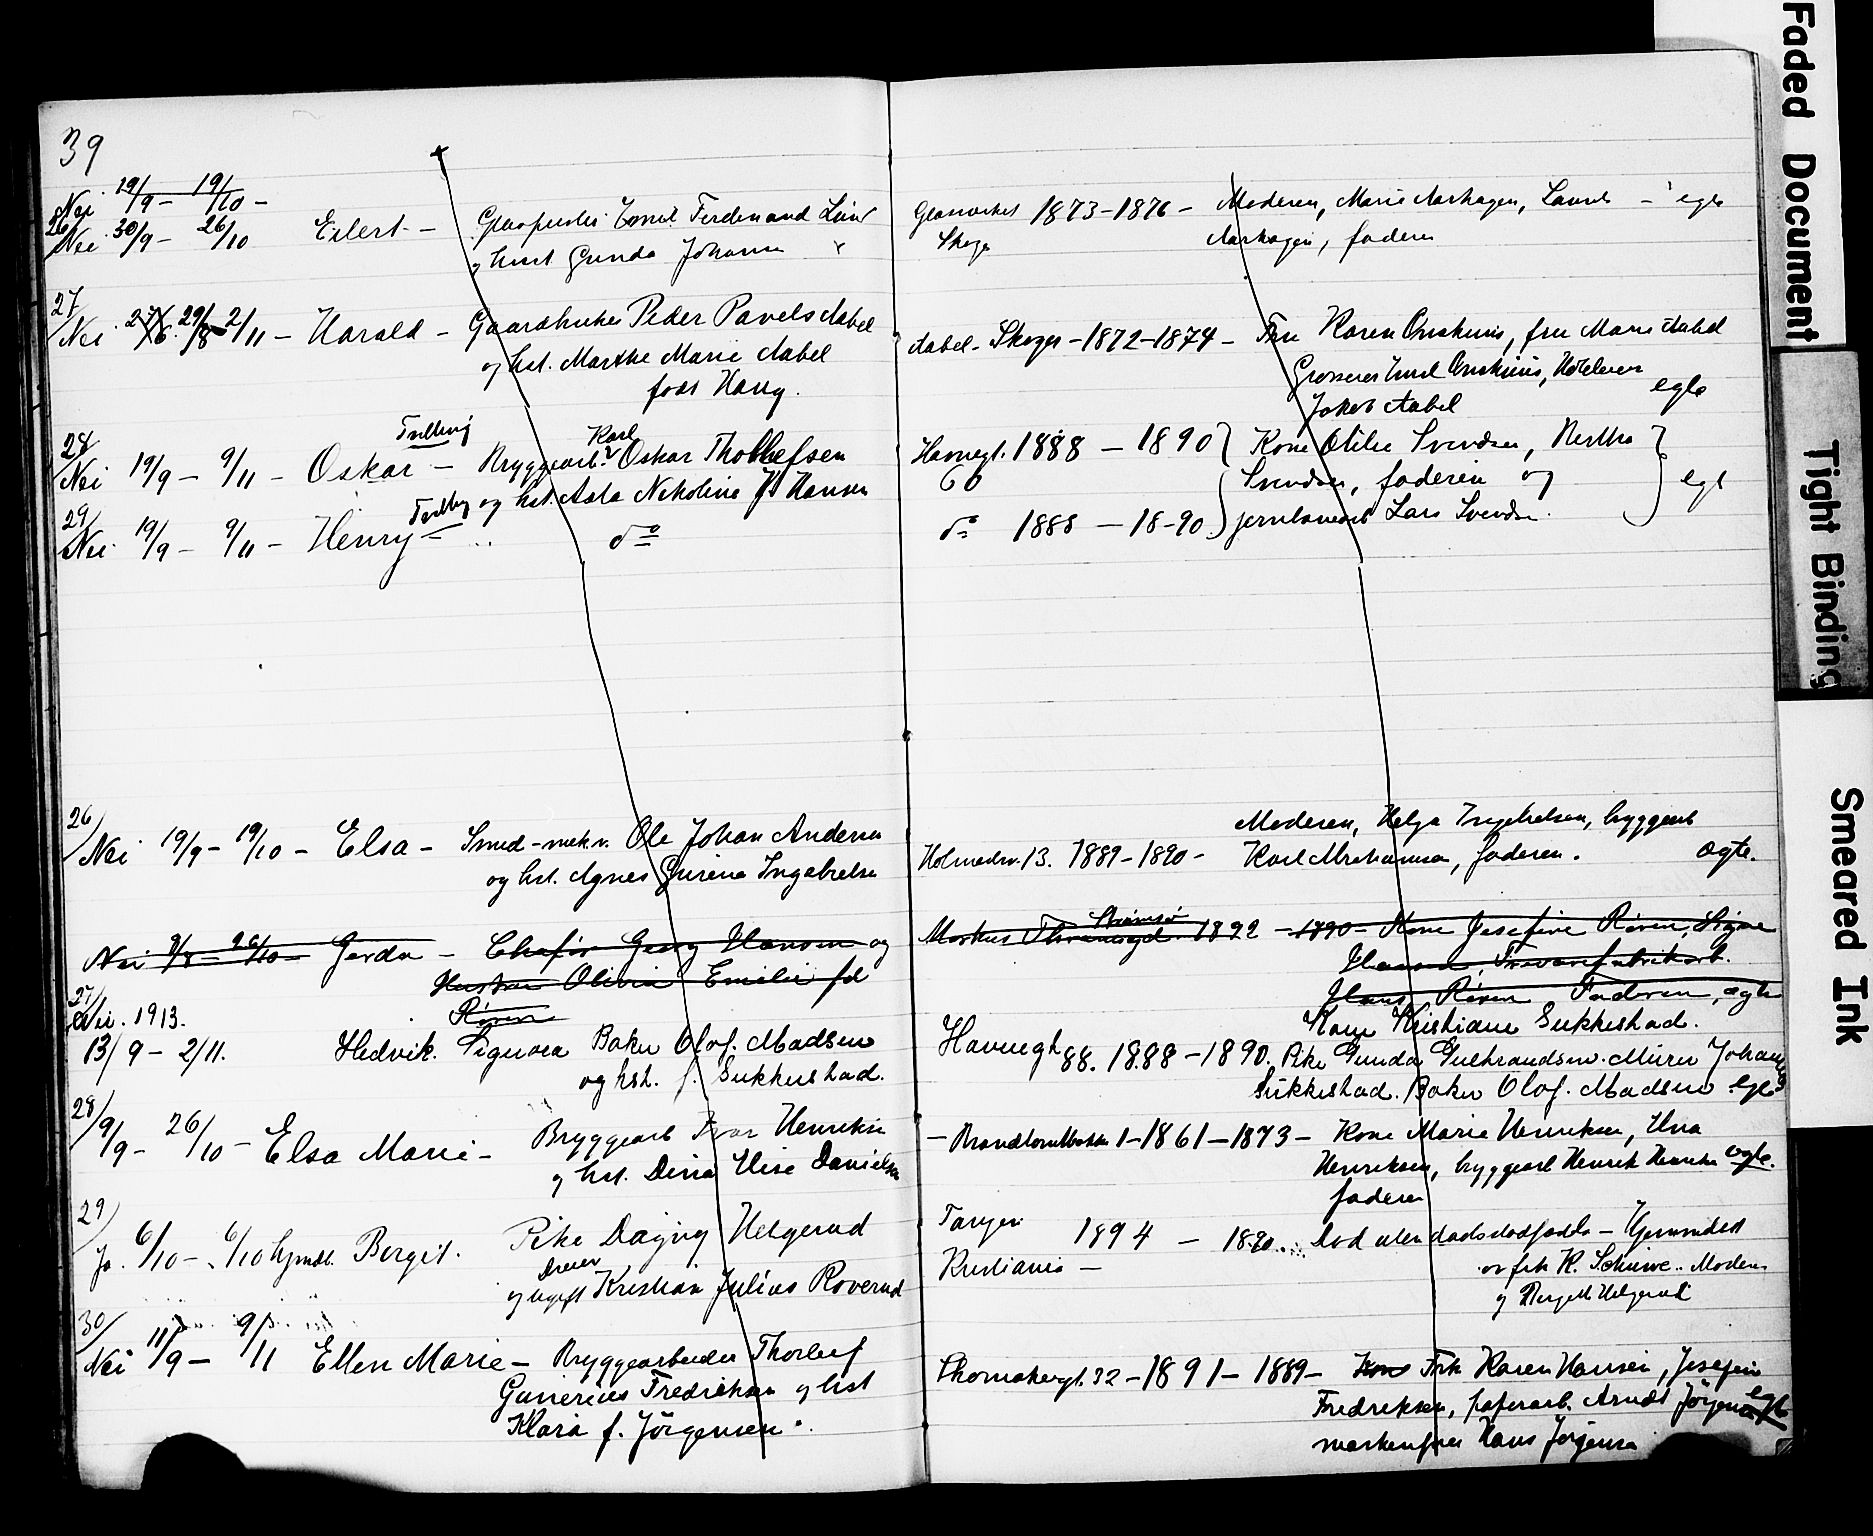 39
Nei 19/9 - 19/10 -
26 Nei 30/9 - 26/10 Eilert - Emil Ferdinand Glasverket 1873-1876 - Moderen, Marie Aarhagen, - egte
og hust Gunda Johanne Skoger Aarhagen, faderen
27 Nei 29/8 2/11 - Harald - Gaardbruker Peder Pavels Aabel Aabel - Skoger - 1872-1874 - Fru Karen fru Marie Aabel
og hst. Marthe Marie Aabel Grosserer Emil
født Haug. Jakob Aabel egte
Tvilling Karl
28 Nei 19/9 - 9/11 - Oskar - Bryggearb. Oskar Thollefsen Havnegt. 1888 - 1890 Kone Otilie Svendsen, Bertha
og hst. Asta Nikoline Hansen 60 Svendsen, faderen og egte
Tvilling
29 Nei 19/9 - 9/11 - Henry - do do 1888 - 18-90 Lars Svendsen.
26 Moderen, Helga Ingebretsen, bryggearb
Nei 19/9 - 19/10 - Elsa - Smed - mekv. Ole Johan Andersen Holmedsv. 13. 1889-1890 - Karl Abrahamsen, faderen. ægte.
og hst. Agnes Gurine Ingebretsen
Strømsø
Nei Gerda - Georg Hansen og Markus Thranesgd. 1892 - 1890 - Kone Josefine Røren, Signe
Hustru Olivia Emilie fd Hansen,
Røren Hans Røren Faderen, ægte
27 Nei. 1913. Kone Kristiane Sukkestad.
13/9 - 2/11. Hedvik. Signora Baker Olof. Madsen Havnegt 88. 1888-1890. Pike Gunda Gulbrandsen. Murer Johannes
og hst. f. Sukkestad. Sukkestad. Baker Olof. Madsen egte
28 9/9 - 26/10 - Elsa Marie - Bryggearb Ivar Henriksen - 1 - 1861 - 1873 - Kone Marie Henriksen, Una
og hst. Dina Elise Danielsen Henriksen, bryggearb Henrik egte.
faderen
29 Ja. 6/10 - 6/10 hjmdt. Bergit. Pike Dagny Helgerud Tangen 1894 - 1890 Død uten daab Hjemmedøbt
Dreier
og ugift Kristian Julius Roverud Kristiania - av frk K. Moderen
og Bergith Helgerud
30 Nei 11/9 - 9/11 Ellen Marie - Bryggearbeider Thorleif Skomakergt. 32 - 1891 - 1889 - Kone Frk Karen Hansen, Josefine
Gunerius Fredriksen og hst Fredriksen, papirarb. Arndt Jörgensen egte
Klara f. Jörgensen. Hans Jørgensen
Faded Document
Tight Binding
Smeared Ink